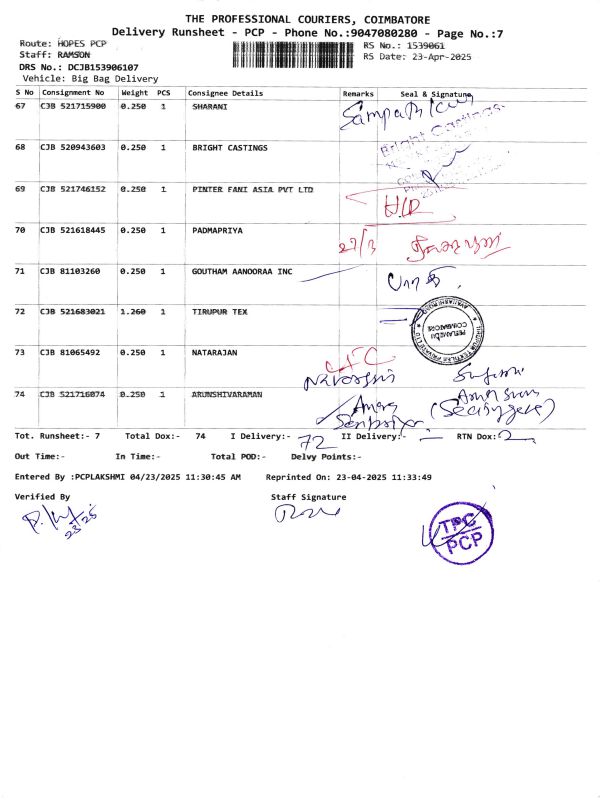 THE PROFESSIONAL COURIERS, COIMBATORE
Delivery Runsheet - PCP - Phone No.:9047080280 - Page No.:7
Route: HOPES PCP RS No.: 1539061
Staff: RAMSON RS Date: 23-Apr-2025
DRS No.: DCJB153906107
Vehicle: Big Bag Delivery
S No Consignment No Weight PCS Consignee Details Remarks Seal & Signature
67 CJB 521715900 0.250 1 SHARANI
Bright Castings
68 CJB 520943603 0.250 1 BRIGHT CASTINGS
69 CJB 521746152 0.250 1 PINTER FANI ASIA PVT LTD
70 CJB 521618445 0.250 1 PADMAPRIYA
71 CJB 81103260 0.250 1 GOUTHAM AANOORAA INC
72 CJB 521683021 1.260 1 TIRUPUR TEX
PEELAMEDU
COIMBATORE
73 CJB 81065492 0.250 1 NATARAJAN
74 CJB 521716074 0.250 1 ARUNSHIVARAMAN
Tot. Runsheet:- 7 Total Dox:- 74 I Delivery:- 72 II Delivery:- RTN Dox:- 2
Out Time:- In Time:- Total POD:- Delvy Points:-
Entered By :PCPLAKSHMI 04/23/2025 11:30:45 AM Reprinted On: 23-04-2025 11:33:49
Verified By Staff Signature
TPC
PCP